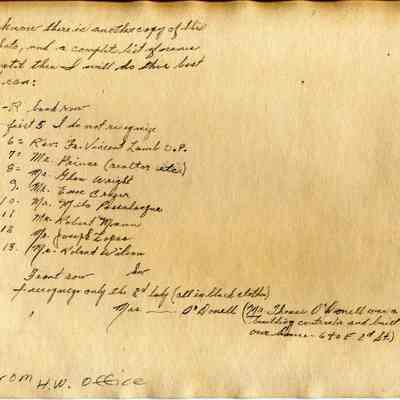 know there is another copy of this
and a complete list of names
until then I will do the best
can:
-R back row
first 5 I do not recognize
6 = Rev. Fr. Vincent Lamb O.P.
7 = Mr. Prince (realtor
8 = Mr. Glen Wright
9. Mr.
10. Mr. Milo
11 Mr. Robert Mann
12 Mr. Joseph Lopez
13. Mr. Robert Wilson
Front row
I recognize only the 2d lady (all in black clothes)
" Mrs. —— O'Donell (Mr. Thomas O'Donell was a
building contractor and built
our home - 640 E 2d St.)
rom H.W. Office